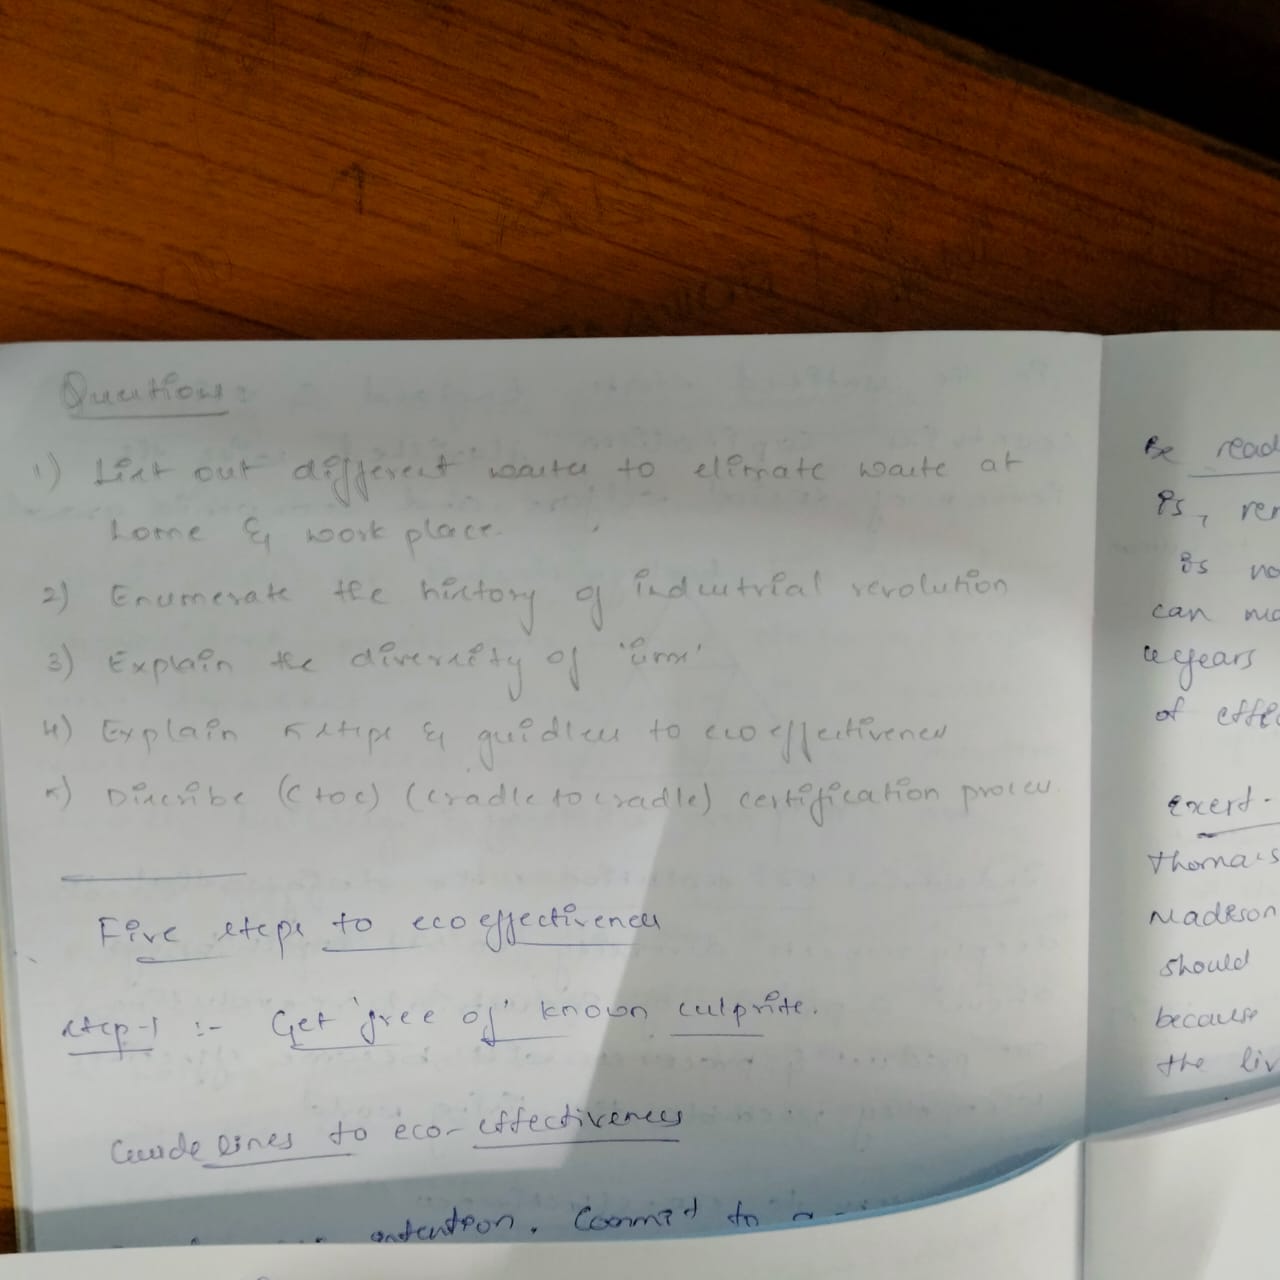 Questions:
1) List out different wastes to elimate waste at
home & work place.
2) Enumerate the history of industrial revolution
3) Explain the diversity of
4) Explain 5 steps & guidlees to eco effectiveness
5) Discribe (C to C) (cradle to cradle) certification process.
Five steps to eco effectiveness
step-1 :- Get 'free of' known culprits.
Guide lines to eco-effectiveness
intention. Commit to a
Be read
is, rer
is no
can ma
years
of effec
Exert-
Thomas
Madison
should
because
the liv